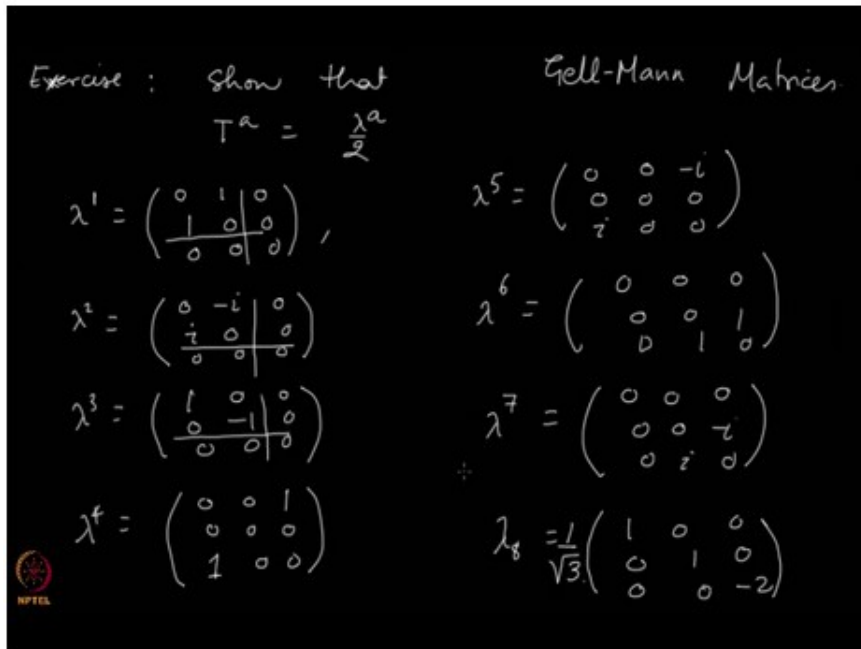 Exercise : Show that
T^a = λ^a/2
λ^1 = ( 0 1 0
1 0 0
0 0 0 ) ,
λ^2 = ( 0 -i 0
i 0 0
0 0 0 )
λ^3 = ( 1 0 0
0 -1 0
0 0 0 )
λ^4 = ( 0 0 1
0 0 0
1 0 0 )
Gell-Mann Matrices
λ^5 = ( 0 0 -i
0 0 0
i 0 0 )
λ^6 = ( 0 0 0
0 0 1
0 1 0 )
λ^7 = ( 0 0 0
0 0 -i
0 i 0 )
λ_8 = 1/√3 ( 1 0 0
0 1 0
0 0 -2 )
NPTEL